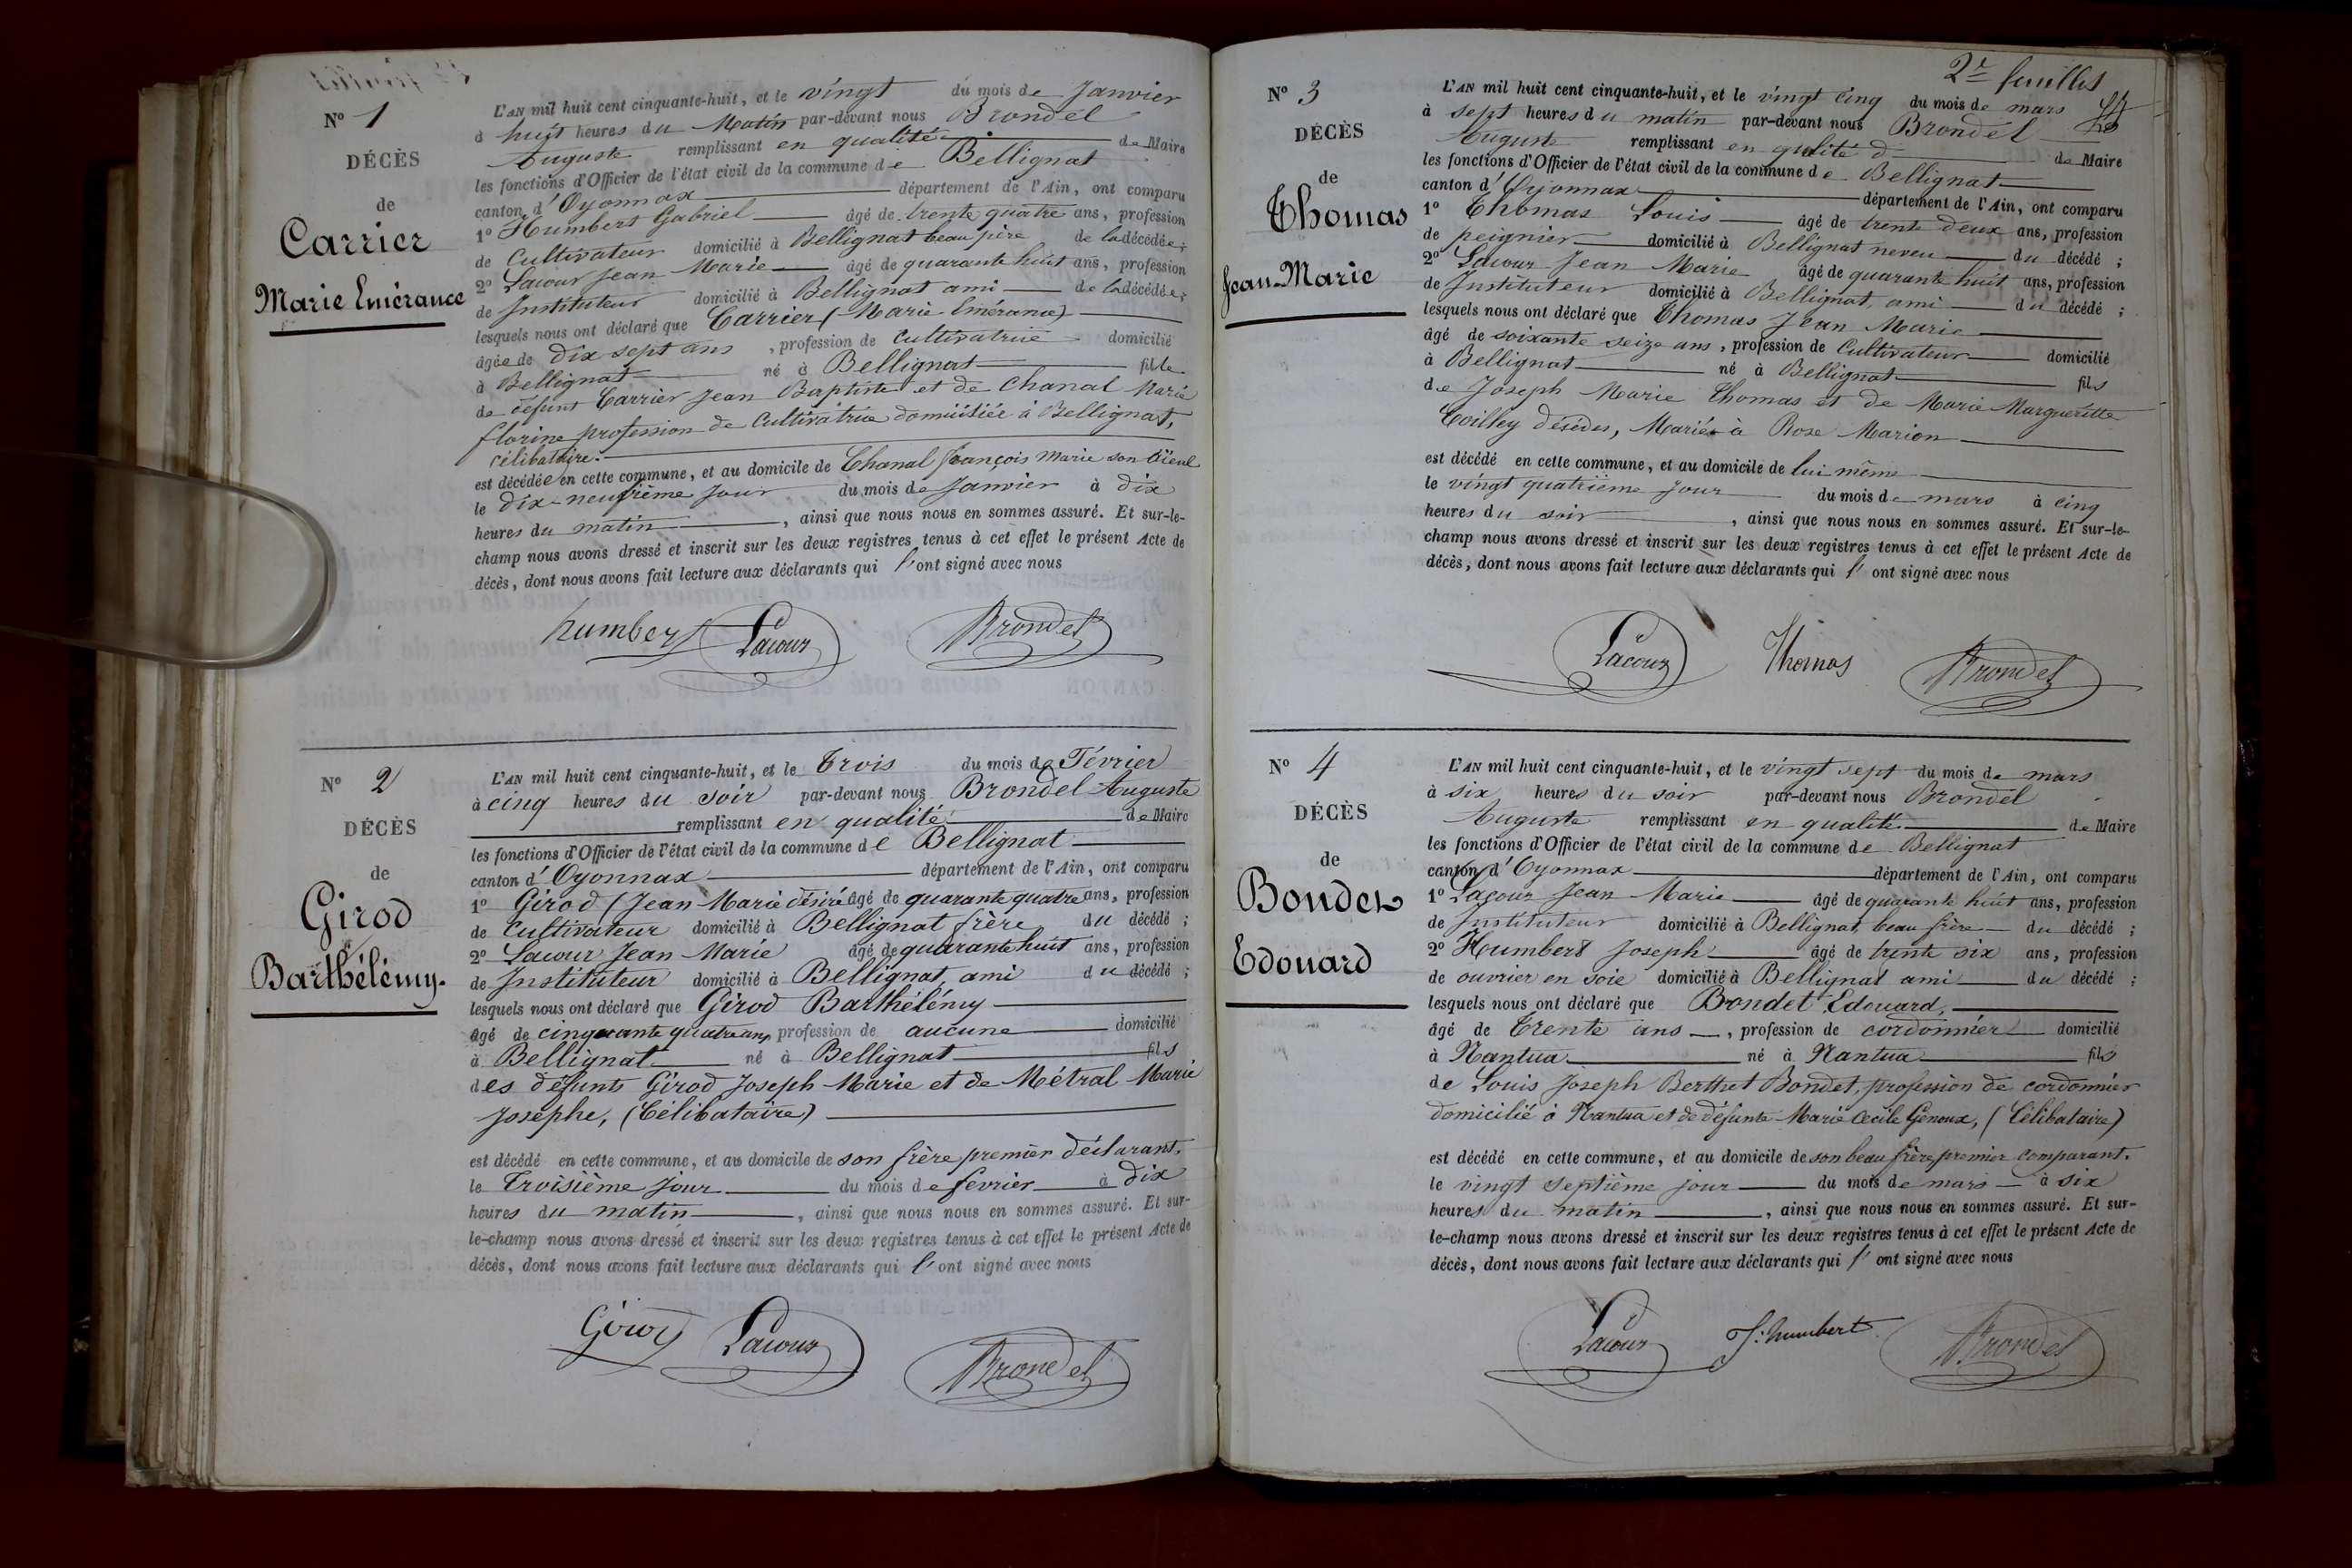 N° 1
DÉCÈS
de
Carrier
Marie Emérance
L'AN mil huit cent cinquante-huit, et le vingt du mois de Janvier
à huit heures du Matin par-devant nous Brondel
Auguste remplissant en qualité de Maire
les fonctions d'Officier de l'état civil de la commune de Bellignat
canton d'Oyonnax département de l'Ain, ont comparu
1° Humbert Gabriel âgé de trente quatre ans, profession
de Cultivateur domicilié à Bellignat beau père de la décédée;
2° Lacour Jean Marie âgé de quarante huit ans, profession
de Instituteur domicilié à Bellignat ami de la décédée;
lesquels nous ont déclaré que Carrier (Marie Emérance)
âgée de dix sept ans, profession de Cultivatrice domicilié
à Bellignat né à Bellignat fille
de défunt Carrier Jean Baptiste et de Chanal Marie
florine profession de Cultivatrice domiciliée à Bellignat,
célibataire.
est décédée en cette commune, et au domicile de Chanal françois Marie son aïeul
le dix-neufième jour du mois de Janvier à dix
heures du matin, ainsi que nous nous en sommes assuré. Et sur-le-
champ nous avons dressé et inscrit sur les deux registres tenus à cet effet le présent Acte de
décès, dont nous avons fait lecture aux déclarants qui l'ont signé avec nous
humbert Lacour Brondel
N° 2
DÉCÈS
de
Girod
Barthélémy.
L'AN mil huit cent cinquante-huit, et le Trois du mois de Février
à cinq heures du soir par-devant nous Brondel Auguste
remplissant en qualité de Maire
les fonctions d'Officier de l'état civil de la commune de Bellignat
canton d'Oyonnax département de l'Ain, ont comparu
1° Girod (Jean Marie désiré âgé de quarante quatre ans, profession
de Cultivateur domicilié à Bellignat frère du décédé;
2° Lacour Jean Marie âgé de quarante huit ans, profession
de Instituteur domicilié à Bellignat, ami du décédé;
lesquels nous ont déclaré que Girod Barthélémy
âgé de cinquante quatre ans, profession de aucune domicilié
à Bellignat né à Bellignat fils
des défunts Girod Joseph Marie et de Métral Marie
Josephe, (Célibataire)
est décédé en cette commune, et au domicile de son frère premier déclarant.
le Troisième jour du mois de février à Dix
heures du matin, ainsi que nous nous en sommes assuré. Et sur-
le-champ nous avons dressé et inscrit sur les deux registres tenus à cet effet le présent Acte de
décès, dont nous avons fait lecture aux déclarants qui l'ont signé avec nous
Girod Lacour Brondel
2e feuillet
N° 3
DÉCÈS
de
Thomas
Jean-Marie
L'AN mil huit cent cinquante-huit, et le vingt cinq du mois de mars
à sept heures du matin par-devant nous Brondel
Auguste remplissant en qualité d de Maire
les fonctions d'Officier de l'état civil de la commune de Bellignat
canton d'Oyonnax département de l'Ain, ont comparu
1° Thomas Louis âgé de trente deux ans, profession
de peignier domicilié à Bellignat neveu du décédé;
2° Lacour Jean Marie âgé de quarante huit ans, profession
de Instituteur domicilié à Bellignat, ami du décédé;
lesquels nous ont déclaré que Thomas Jean Marie
âgé de soixante seize ans, profession de Cultivateur domicilié
à Bellignat né à Bellignat fils
de Joseph Marie Thomas et de Marie Margueritte
Coilley désédés, Marié à Rose Marion
est décédé en cette commune, et au domicile de lui même
le vingt quatrième jour du mois de mars à cinq
heures du soir, ainsi que nous nous en sommes assuré. Et sur-le-
champ nous avons dressé et inscrit sur les deux registres tenus à cet effet le présent Acte de
décès, dont nous avons fait lecture aux déclarants qui l'ont signé avec nous
Lacour Thomas Brondel
N° 4
DÉCÈS
de
Bondet
Edouard
L'AN mil huit cent cinquante-huit, et le vingt sept du mois de mars
à six heures du soir par-devant nous Brondel
Auguste remplissant en qualité de Maire
les fonctions d'Officier de l'état civil de la commune de Bellignat
canton d'Oyonnax département de l'Ain, ont comparu
1° Lacour Jean Marie âgé de quarante huit ans, profession
de Instituteur domicilié à Bellignat, beau frère du décédé;
2° Humbert Joseph âgé de trente six ans, profession
de ouvrier en soie domicilié à Bellignat ami du décédé;
lesquels nous ont déclaré que Bondet Edouard,
âgé de Trente ans, profession de cordonnier domicilié
à Nantua né à Nantua fils
de Louis Joseph Berthet Bondet, profession de cordonnier
domicilié à Nantua et de défunte Marie Cécile Genoux, (Célibataire)
est décédé en cette commune, et au domicile de son beau frère premier comparant.
le vingt septième jour du mois de mars à six
heures du matin, ainsi que nous nous en sommes assuré. Et sur-
le-champ nous avons dressé et inscrit sur les deux registres tenus à cet effet le présent Acte de
décès, dont nous avons fait lecture aux déclarants qui l'ont signé avec nous
Lacour J. humbert Brondel